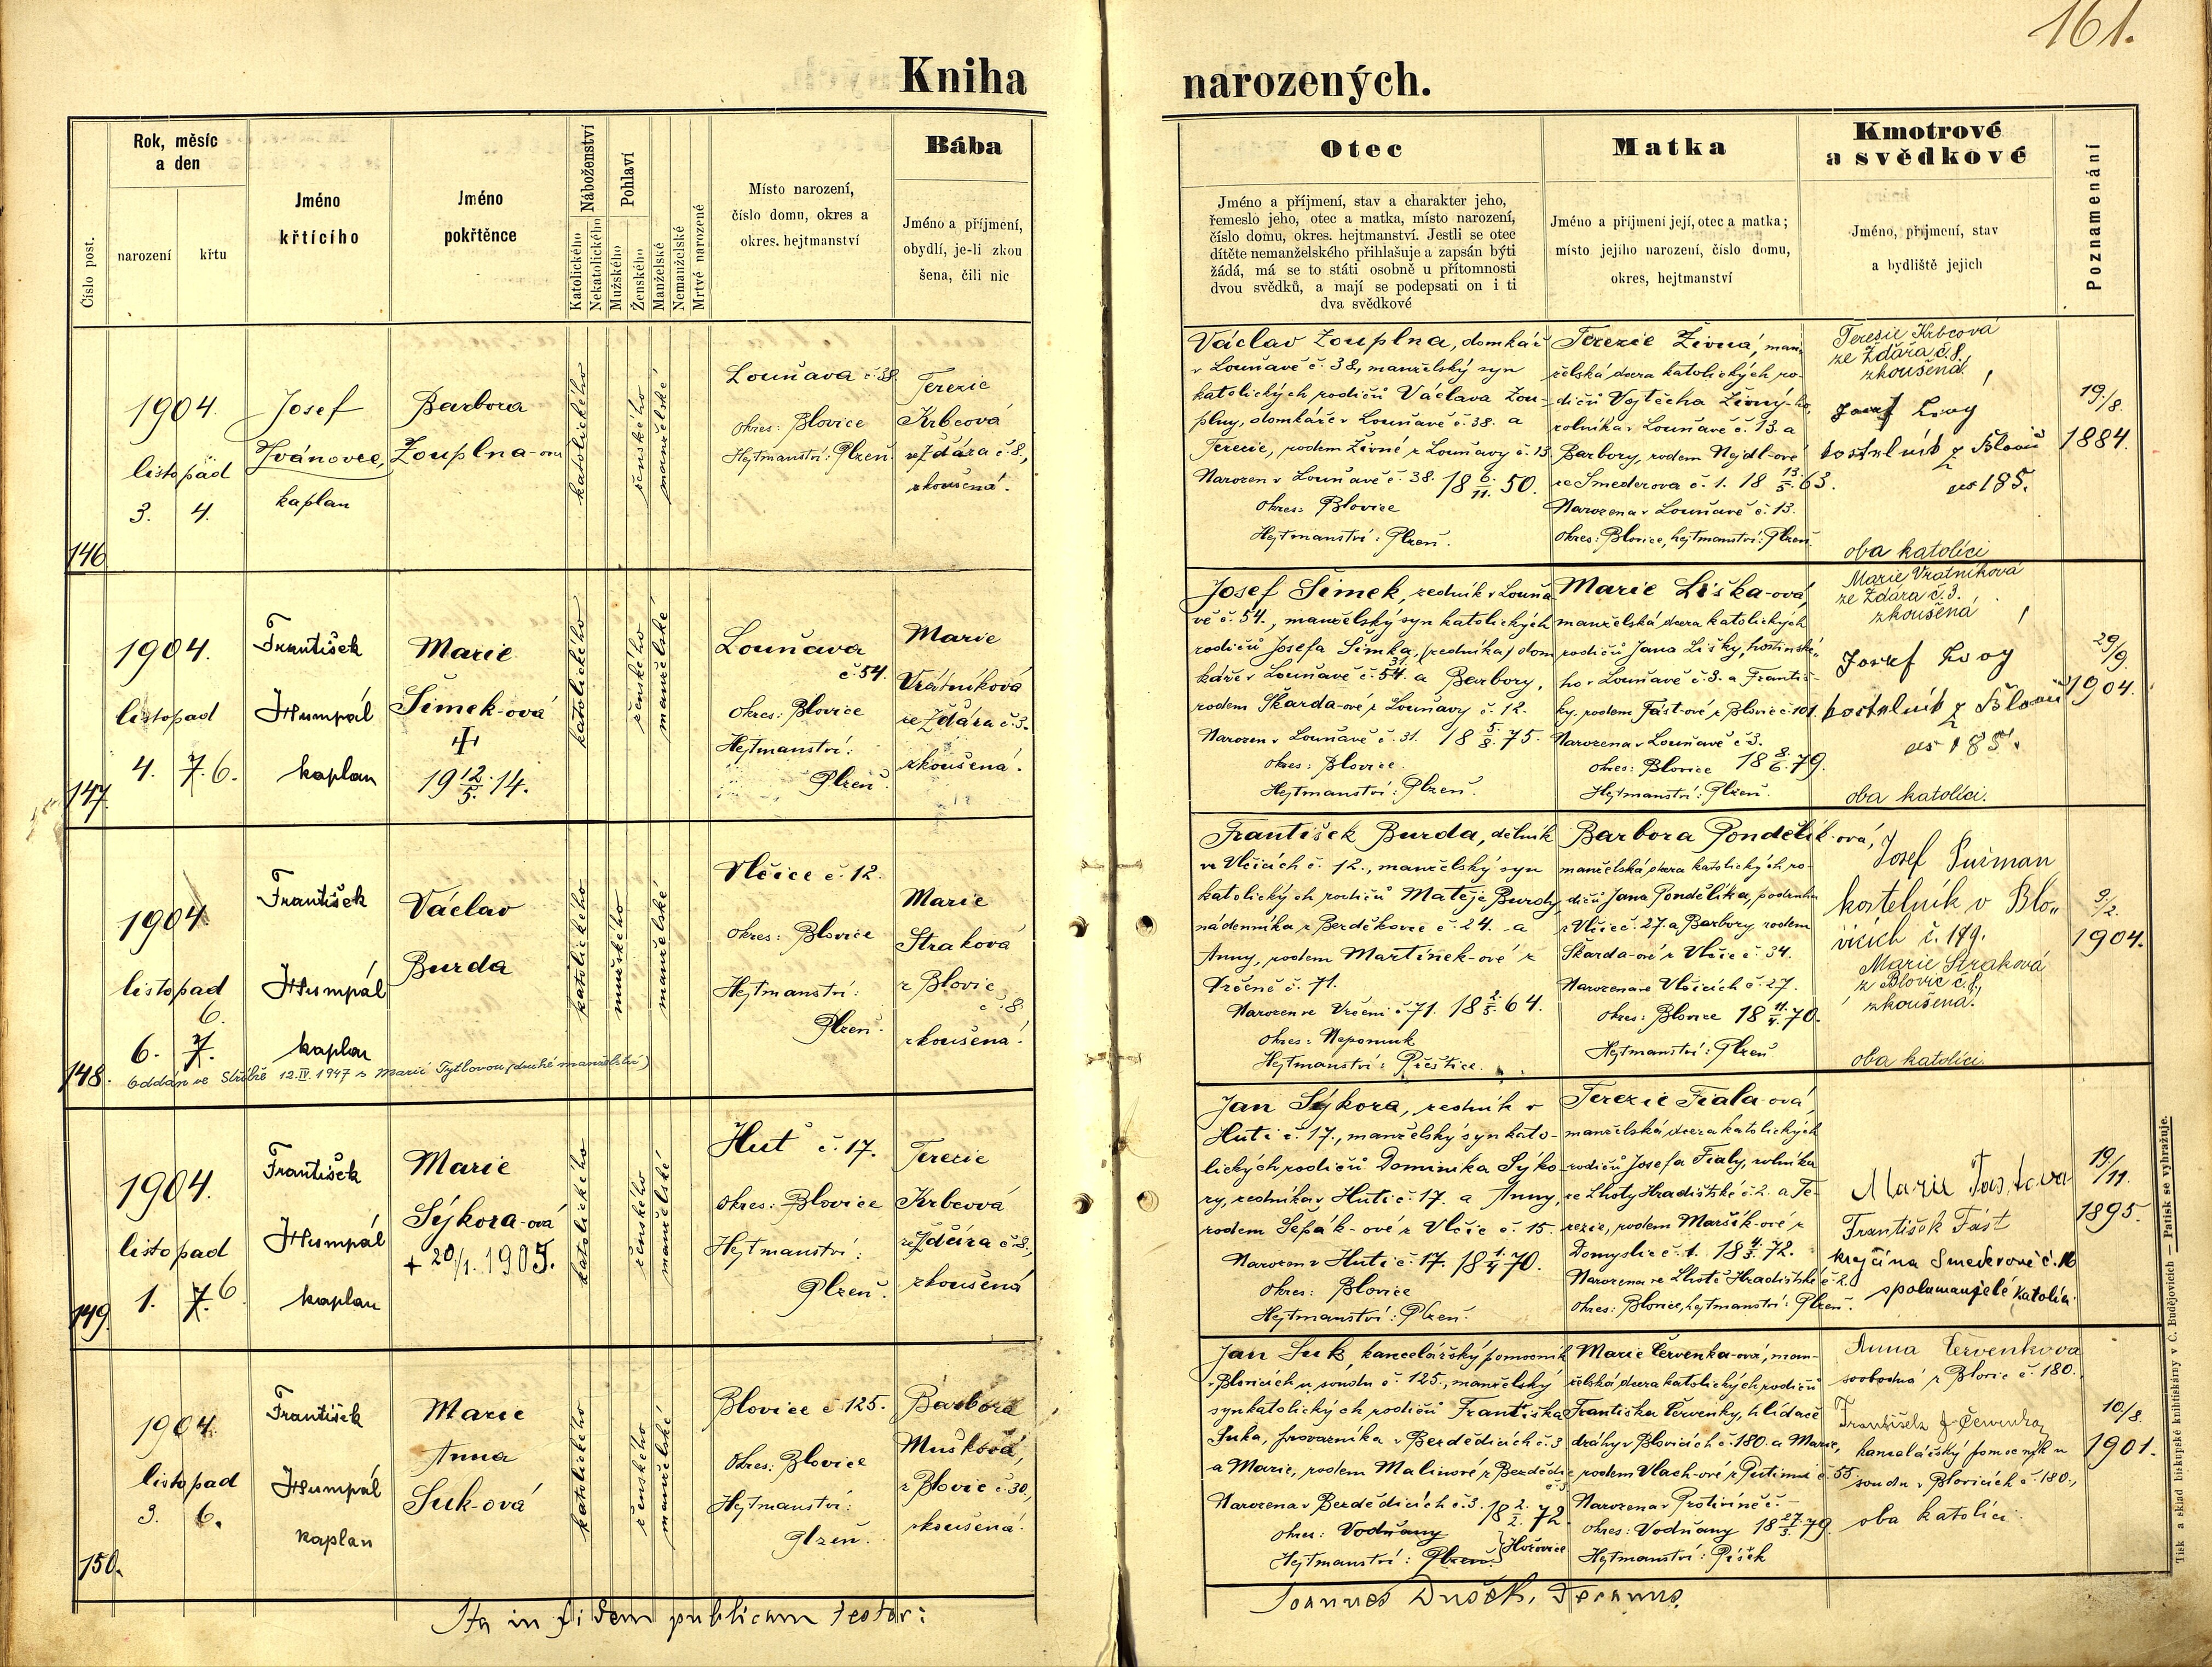 161.
Kniha narozených.
Číslo post.
Rok, měsíc
a den
narození
křtu
Jméno
křtícího
Jméno
pokřtěnce
Náboženství
Katolického
Nekatolického
Pohlaví
Mužského
Ženského
Manželské
Nemanželské
Mrtvé narozené
Místo narození,
číslo domu, okres a
okres. hejtmanství
Bába
Jméno a příjmení,
obydlí, je-li zkou
šena, čili nic
Otec
Jméno a příjmení, stav a charakter jeho,
řemeslo jeho, otec a matka, místo narození,
číslo domu, okres. hejtmanství. Jestli se otec
dítěte nemanželského přihlašuje a zapsán býti
žádá, má se to státi osobně u přítomnosti
dvou svědků, a mají se podepsati on i ti
dva svědkové
Matka
Jméno a příjmení její, otec a matka;
místo jejího narození, číslo domu,
okres, hejtmanství
Kmotrové
a svědkové
Jméno, příjmení, stav
a bydliště jejich
Poznamenání
146
1904.
listopad
3. 4.
Josef
Jvánovec,
kaplan
Barbora
Zouplna-ová
katolického
ženského
manželské
Louňava č 38.
okres: Blovice
Hejtmanství: Plzeň.
Terezie
Krbcová
ze Ždára č 8.,
zkoušená.
Václav Zouplna, domkář
v Louňavě č. 38, manželský syn
katolických rodičů Václava Zou-
plny, domkáře v Louňavě č. 38. a
Terezie, rodem Živné z Louňavy č. 13
Narozen v Louňavě č. 38. 18 6./11. 50.
okres: Blovice
Hejtmanství: Plzeň.
Terezie Živná, man-
želská dcera katolických ro-
dičů Vojtěcha Živný-ho,
rolníka v Louňavě č. 13. a
Barbory, rodem Nejdl-ové
ze Smederova č. 1. 18 13./5. 63.
Narozena v Louňavě č. 13.
okres: Blovice, hejtmanství: Plzeň.
Terezie Krbcová
ze Ždára č. 8.,
zkoušená.
Josef
kostelník z
185.
oba katolíci
19./8.
1884.
147
1904.
listopad
4. 7. 6.
František
Humpál
kaplan
Marie
Šimek-ová
19 12./5. 14.
katolického
ženského
manželské
Louňava
č. 54.
okres: Blovice
Hejtmanství:
Plzeň.
Marie
Vrátníková
ze Ždára č 3.
zkoušená.
Josef Šimek, zedník v Louňa
vě č. 54., manželský syn katolických
rodičů Josefa Šimka, (zedníka) dom
káře v Louňavě č. 54. 31. a Barbory,
rodem Škarda-ové z Louňavy č. 12.
Narozen v Louňavě č. 31. 18 5./8. 75.
okres: Blovice.
Hejtmanství: Plzeň.
Marie Liška-ová,
manželská dcera katolických
rodičů Jana Lišky, hostinské-
ho v Louňavě č. 3. a Františ-
ky, rodem Fást-ové z Blovic č. 101.
Narozena v Louňavě č 3.
okres: Blovice 18 8./6. 79.
Hejtmanství: Plzeň.
Marie Vratníková
ze Ždára č. 3.
zkoušená
Josef
kostelník z
185.
oba katolíci.
29/9.
1904.
148.
1904.
listopad
6.
6. 7.
František
Humpál
kaplan
Václav
Burda
katolického
mužského
manželské
Oddán ve Stříbře 12.IV.1947 s Marií Tytlovou (druhé manželství)
Vlčice č. 12.
okres: Blovice
Hejtmanství:
Plzeň.
Marie
Straková
z Blovic
č 8
zkoušená.
František Burda, dělník
ve Vlčicích č. 12., manželský syn
katolických rodičů Matěje Burdy,
nádenníka z Berděkovce č. 24. a
Anny, rodem Martínek-ové z
Vrčeně č. 71.
Narozen ve Vrčeni č 71. 18 2./5. 64.
okres: Nepomuk
Hejtmanství: Přeštice.
Barbora Pondělík-ová,
manželská dcera katolických ro-
dičů Jana Pondělíka, podruha
z Vlčic č. 27. a Barbory rodem
Škarda-ové z Vlčic č. 34.
Narozena ve Vlčicích č. 27.
okres: Blovice 18 11./4. 70.
Hejtmanství: Plzeň
Josef Pušman
kostelník v Blo-
vicích č. 179.
Marie Straková
z Blovic č. 8,
zkoušená.
oba katolíci.
3./2.
1904.
149
1904.
listopad
1. 7. 6
František
Humpál
kaplan
Marie
Sýkora-ová
+ 20/1. 1905.
katolického
ženského
manželské
Huť č. 17.
okres: Blovice
Hejtmanství:
Plzeň.
Terezie
Krbcová
ze Ždára č. 8.,
zkoušená
Jan Sýkora, zedník v
Huti č. 17., manželský syn kato-
lických rodičů Dominika Sýko-
ry, zedníka v Huti č. 17. a Anny,
rodem Šepák-ové z Vlčic č. 15.
Narozen v Huti č. 17. 18 1./4. 70.
okres: Blovice
Hejtmanství: Plzeň.
Terezie Fiala-ová,
manželská dcera katolických
rodičů Josefa Fialy, rolníka
ze Lhoty Hradištské č. 2. a Te-
rezie, rodem Maršík-ové z
Domyslic č. 1. 18 4./3. 72.
Narozena ve Lhotě Hradištské č. 2.
okres: Blovice, hejtmanství: Plzeň.
Marie Fastova
František Fást
krejčí na Smederově č. 16
spolumanželé katolíci.
19/11.
1895.
150.
1904.
listopad
3. 6.
František
Humpál
kaplan
Marie
Anna
Suk-ová
katolického
ženského
manželské
Blovice č 125.
Okres: Blovice
Hejtmanství:
Plzeň.
Barbora
Mušková,
z Blovic č. 30.,
zkoušená.
Jan Suk, kancelářský pomocník
v Blovicích u soudu č. 125., manželský
syn katolických rodičů Františka
Suka, provazníka v Bezdědicích č. 3
a Marie, rodem Malinové z Bezdědic
č. 3
Narozen v Bezdědicích č. 3. 18 2./2. 72.
okres: Vodňany
Hejtmanství: Plzeň. } Hořovice
Marie Červenka-ová, man-
želská dcera katolických rodičů
Františka Červenky, hlídače
dráhy v Blovicích č. 180. a Marie,
rodem Vlach-ové z Putimi č 55.
Narozena v Protivíně č. -
okres: Vodňany 18 27./3. 79.
Hejtmanství: Písek
Anna Červenkova
svobodná z Blovic č. 180.
František J. Červenka
kancelářský pomocník u
soudu v Blovicích č. 180.,
oba katolíci.
10/8.
1901.
Ita in fidem publicam testor:
Joannes Dušek, Decanus.
Tisk a sklad biskupské knihtiskárny v C. Budějovicích — Patisk se vyhražuje.